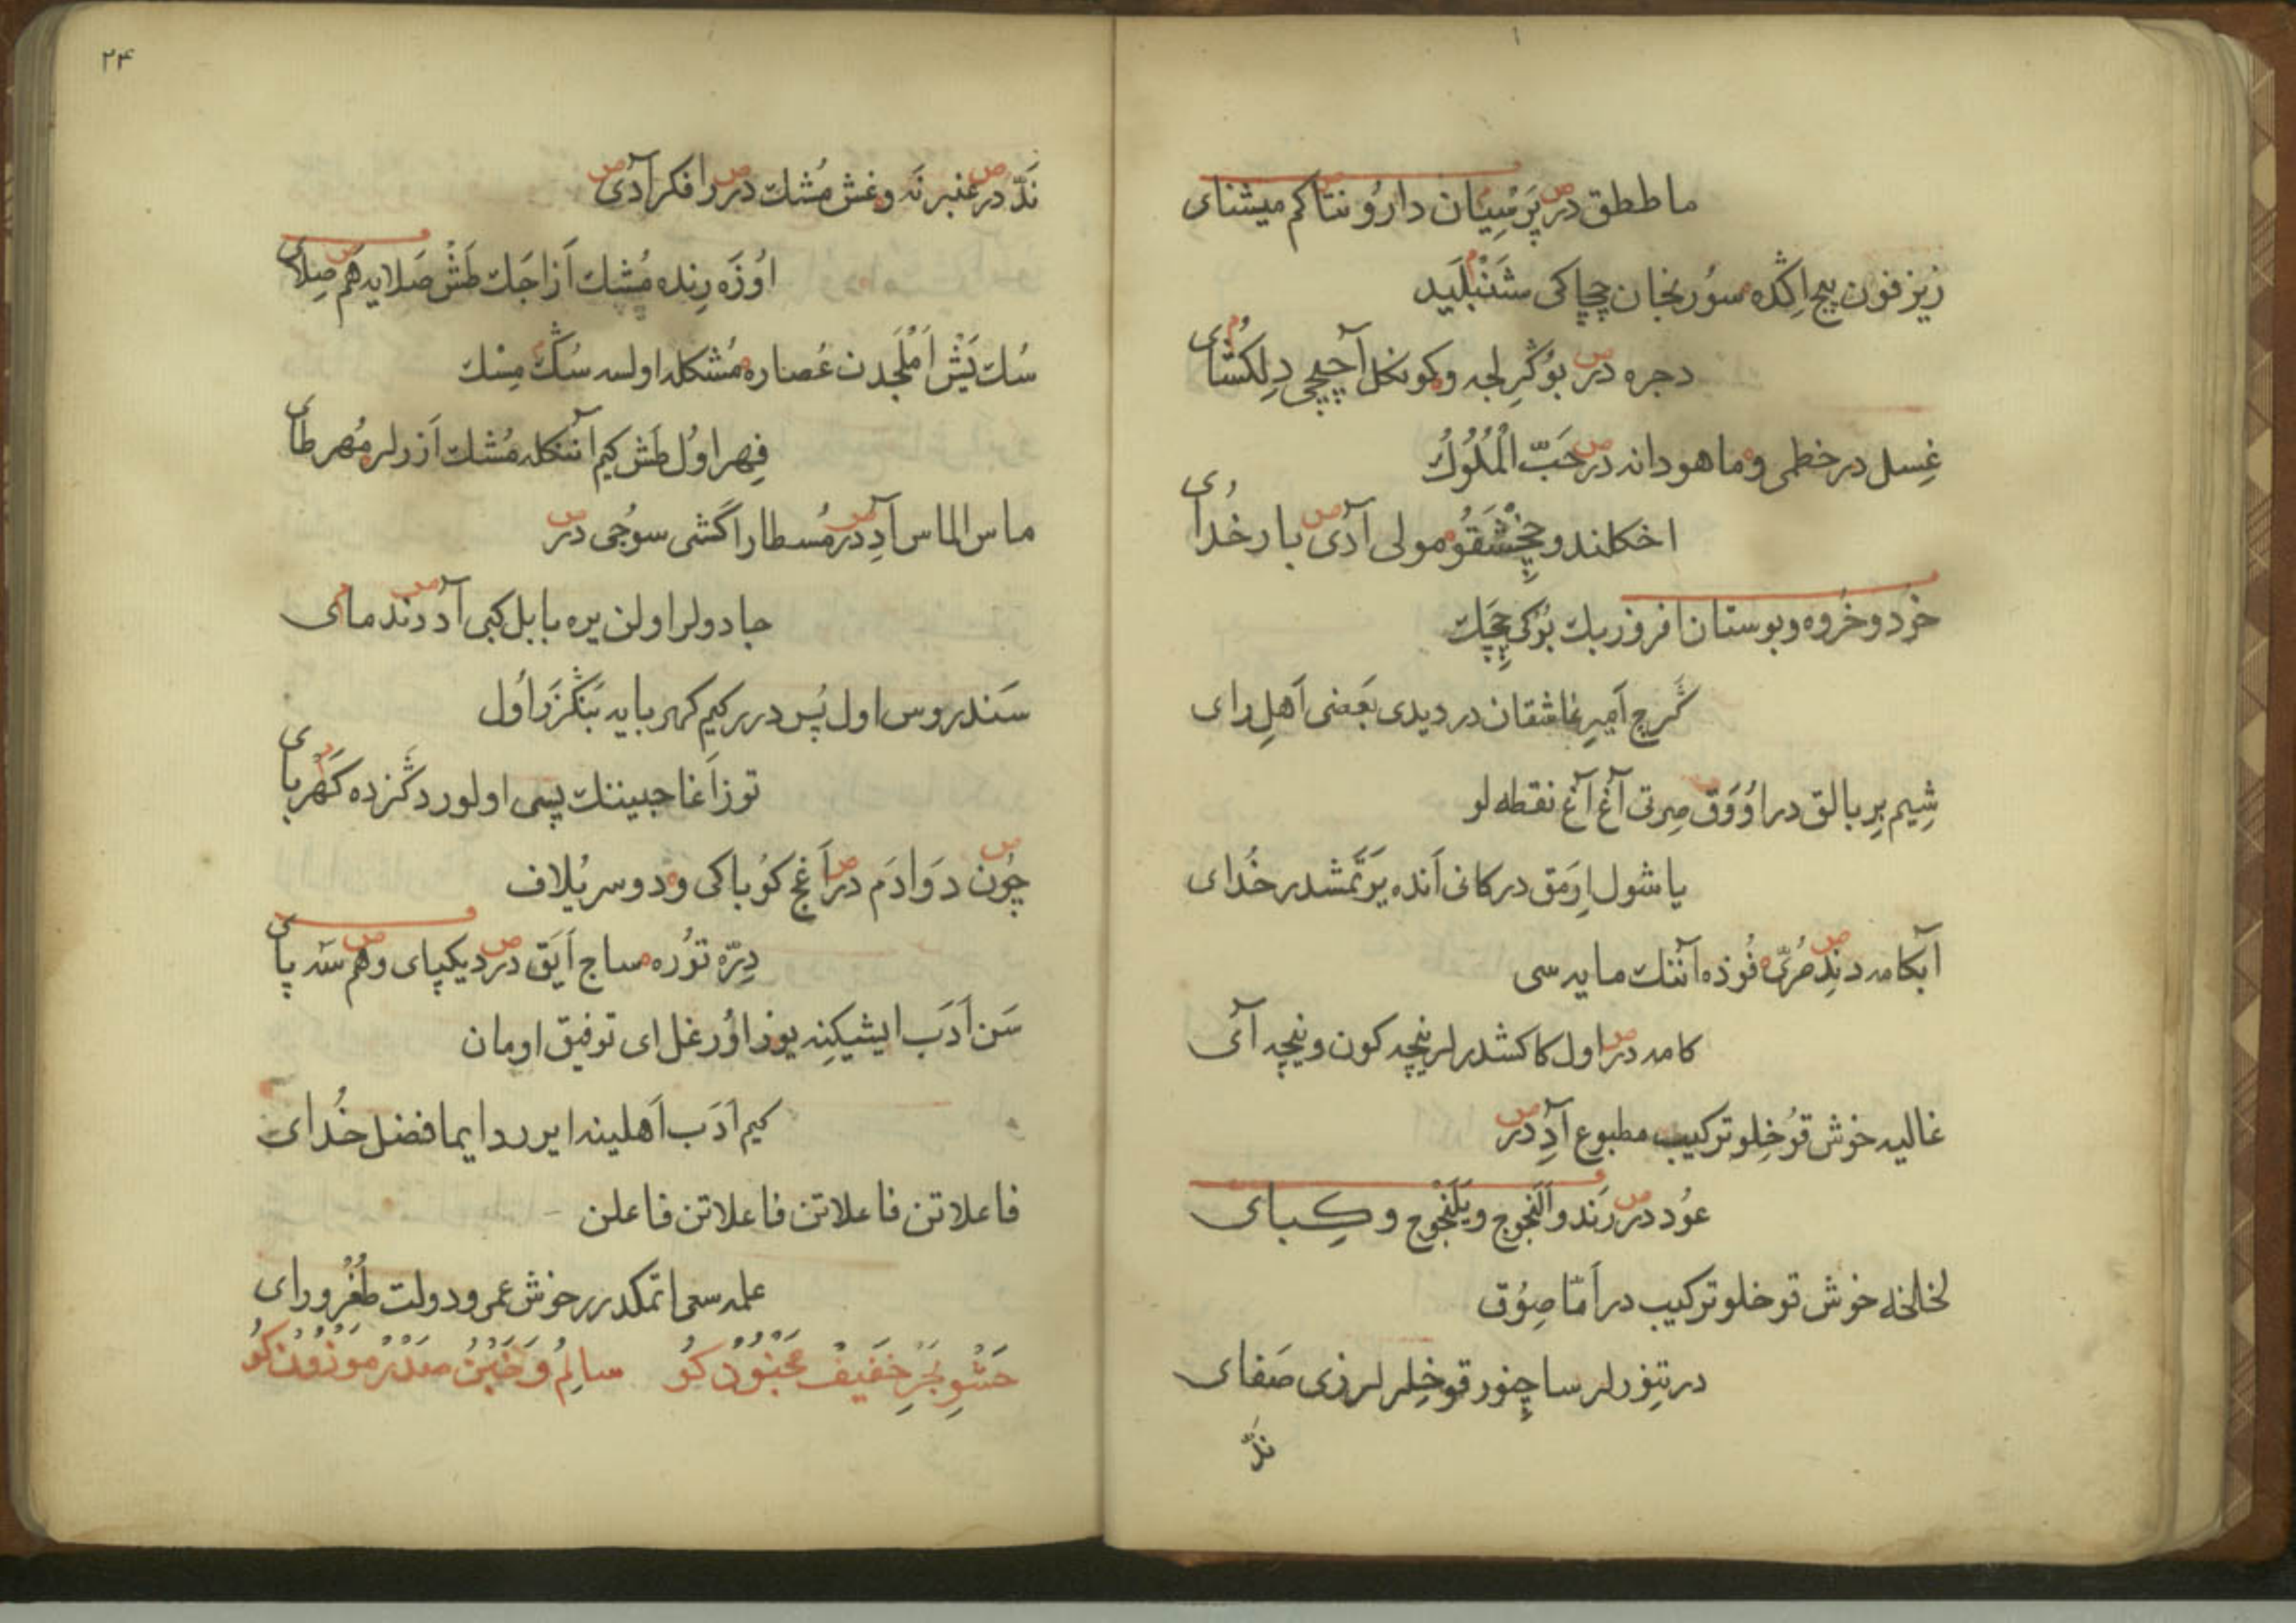 ما ططق در پَرْسِیَان دارُو نتا کم میشنای
زیزفون پیچ اِکْده سوُرنجان چچاکی شَنْبَلَید
دجره در بوُکْرِلجه وکونکل آچیجی دِلکُشای
غِسل در خطمی وماهودانه در حَبّ الْمُلُوكُ
اخکلندو چِخْشَقُو مولی آدی بار خُدای
خرد وخُروه وبوستان افروز بك بُزکی چِچَك
کَرج اَمیرِ عاشقان در دیدی بَعضی اَهلِ رای
شِیم بِر بالق در اوُوَق صِرتی آغ آغ نقطه لو
یا شول اِرمق در کانی اَنده یرَتمشدر خُدای
آبکامه دندِ مُرّی فُوذه آننك مایه سی
کامه در اول کاکشدرلر نیچه کون ونیچه آی
غالیه خوش قوُخِلو ترکیب مطبوع آدِ در
عوُد در رَند واَلَنجوج ویَلَنْجوج وکِبای
لخالخه خوش قوخلو ترکیب در اَمّا صِوُق
درتِنوُرلر ساچِنور قوخِلرلرزی صَفای
ندّ
۲۴
نَدّ در عنبر نَه وغش مُشك در رافکر آدی
اوُزَه رِنده مُشك اَزاجَك طَشْ صَلایه هَم صِلای
سُك یَشْ اَمْلَجدن عُصاره مُشکله اولسه سُكّ مِسْك
فِهر اوُل طَش کیم آننکله مُشك اَزرلر مُهرطای
ماس الماس آدِ در مُسطار اکشی سوُجی در
جادولر اولن یره بابل کبی آد دُرند مای
سَندروس اول پُس در رکیم کهربایه بَنْکزَر اُول
توز اَغاجینینك پسی اولور دکْزده کَهربای
چوُن دَوادَم در اَغچ کوُباکی ودوسر یُلاف
دِرّه توُره ساج اَیَق در دیکپای وهم سَه پای
سَن اَدَب ایشیکِنه یوز اوُر غل ای توفیق اومان
کیم اَدَب اَهلینه ایررد ایما فضل خُدای
فاعلاتن فاعلاتن فاعلاتن فاعلن
علمه سعی اتمکدر رخوش عمر ودولت طُغْرو رای
حَشْوِ بَحْرِ خَفیفْ مَخْبُوُن کُو سالِمُ وَخَبْنُ صَدْرْ مَوْزُوُن کُو